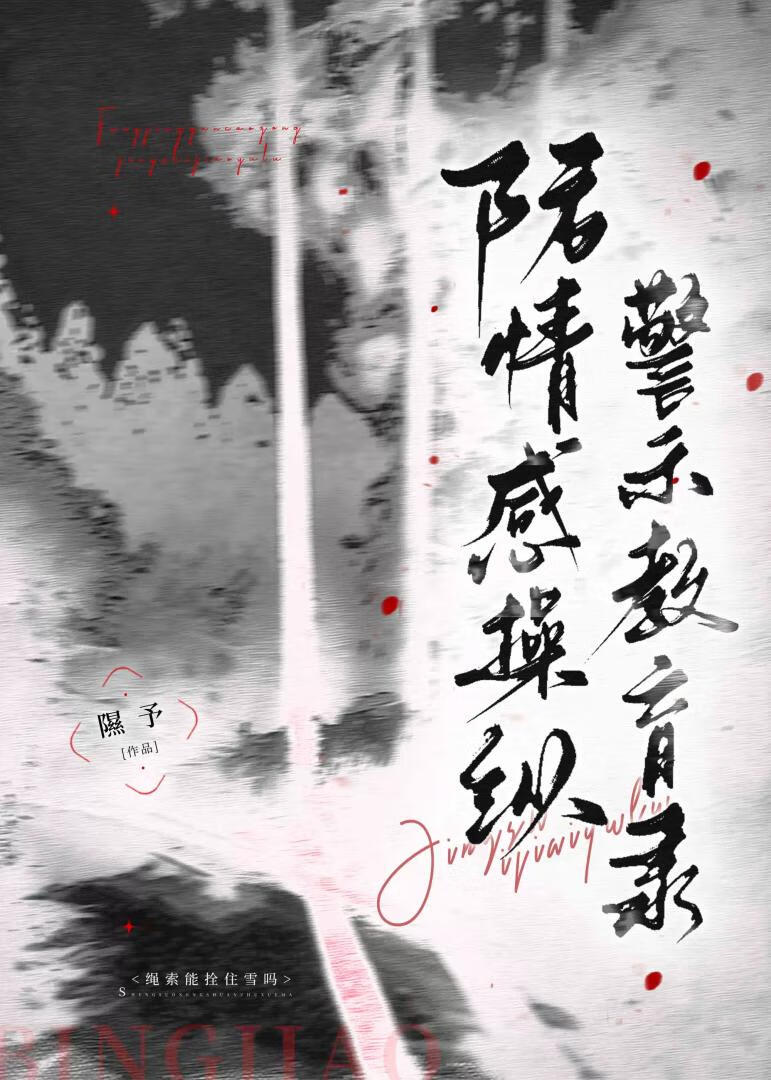 Fangqinggancaozong
jingshijiaoyulu
防情感操纵
警示教育录
隰予
[作品]
<绳索能拴住雪吗>
SHENGSUONENGSHUANZHUXUEMA
BINGJIAO